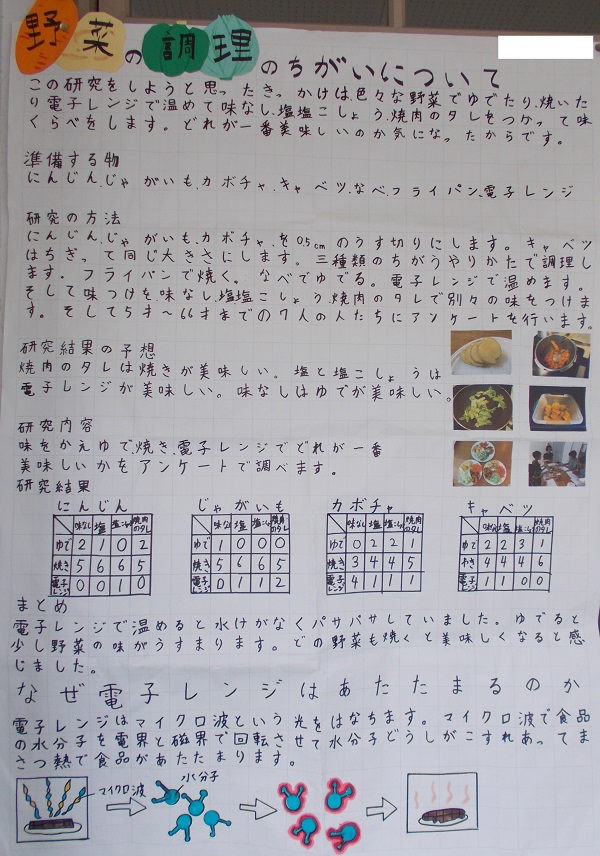 野菜の調理のちがいについて
この研究をしようと思ったきっかけは、色々な野菜でゆでたり、焼いた
り電子レンジで温めて味なし、塩、塩こしょう、焼肉のタレをつかって味
くらべをします。どれが一番美味しいのか気になったからです。
準備する物
にんじん、じゃがいも、カボチャ、キャベツ、なべ、フライパン、電子レンジ
研究の方法
にんじん、じゃがいも、カボチャ、を0.5cmのうす切りにします。キャベツ
はちぎって同じ大きさにします。三種類のちがうやりかたで調理し
ます。フライパンで焼く。なべでゆでる。電子レンジで温めます。
そして味つけを、味なし、塩、塩こしょう、焼肉のタレで別々の味をつけま
す。そして5才〜66才までの7人の人たちにアンケートを行います。
研究結果の予想
焼肉のタレは焼きが美味しい。塩と塩こしょうは
電子レンジが美味しい。味なしはゆでが美味しい。
研究内容
味をかえゆで、焼き、電子レンジでどれが一番
美味しいかをアンケートで調べます。
研究結果
にんじん
味なし 塩 塩こしょう 焼肉のタレ
ゆで 2 1 0 2
焼き 5 6 6 5
電子レンジ 0 0 1 0
じゃがいも
味なし 塩 塩こしょう 焼肉のタレ
ゆで 1 0 0 0
焼き 5 6 6 5
電子レンジ 0 1 1 2
カボチャ
味なし 塩 塩こしょう 焼肉のタレ
ゆで 0 2 2 1
焼き 3 4 4 5
電子レンジ 4 1 1 1
キャベツ
味なし 塩 塩こしょう 焼肉のタレ
ゆで 2 2 3 1
やき 4 4 4 6
電子レンジ 1 1 0 0
まとめ
電子レンジで温めると水けがなくパサパサしていました。ゆでると
少し野菜の味がうすまります。どの野菜も焼くと美味しくなると感
じました。
なぜ電子レンジはあたたまるのか
電子レンジはマイクロ波という光をはなちます。マイクロ波で食品
の水分子を電界と磁界で回転させて水分子どうしがこすれあってま
さつ熱で食品があたたまります。
マイクロ波
水分子